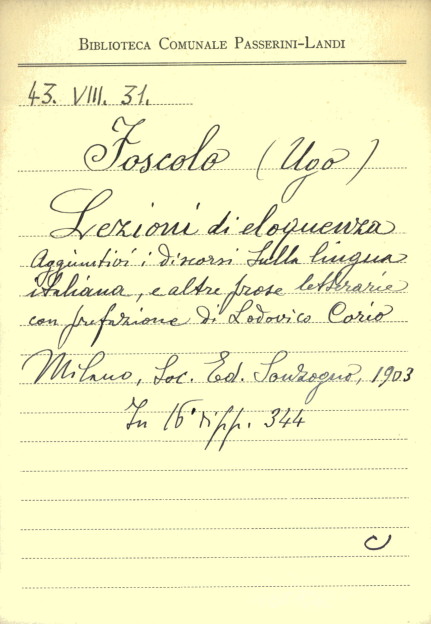 BIBLIOTECA COMUNALE PASSERINI-LANDI
43. VIII. 31.
Foscolo (Ugo)
Lezioni di eloquenza
Aggiuntivi i discorsi sulla lingua
italiana, e altre prose letterarie
con prefazione di Lodovico Corio
Milano, Soc. Ed. Sonzogno, 1903
In 16° di pp. 344
C